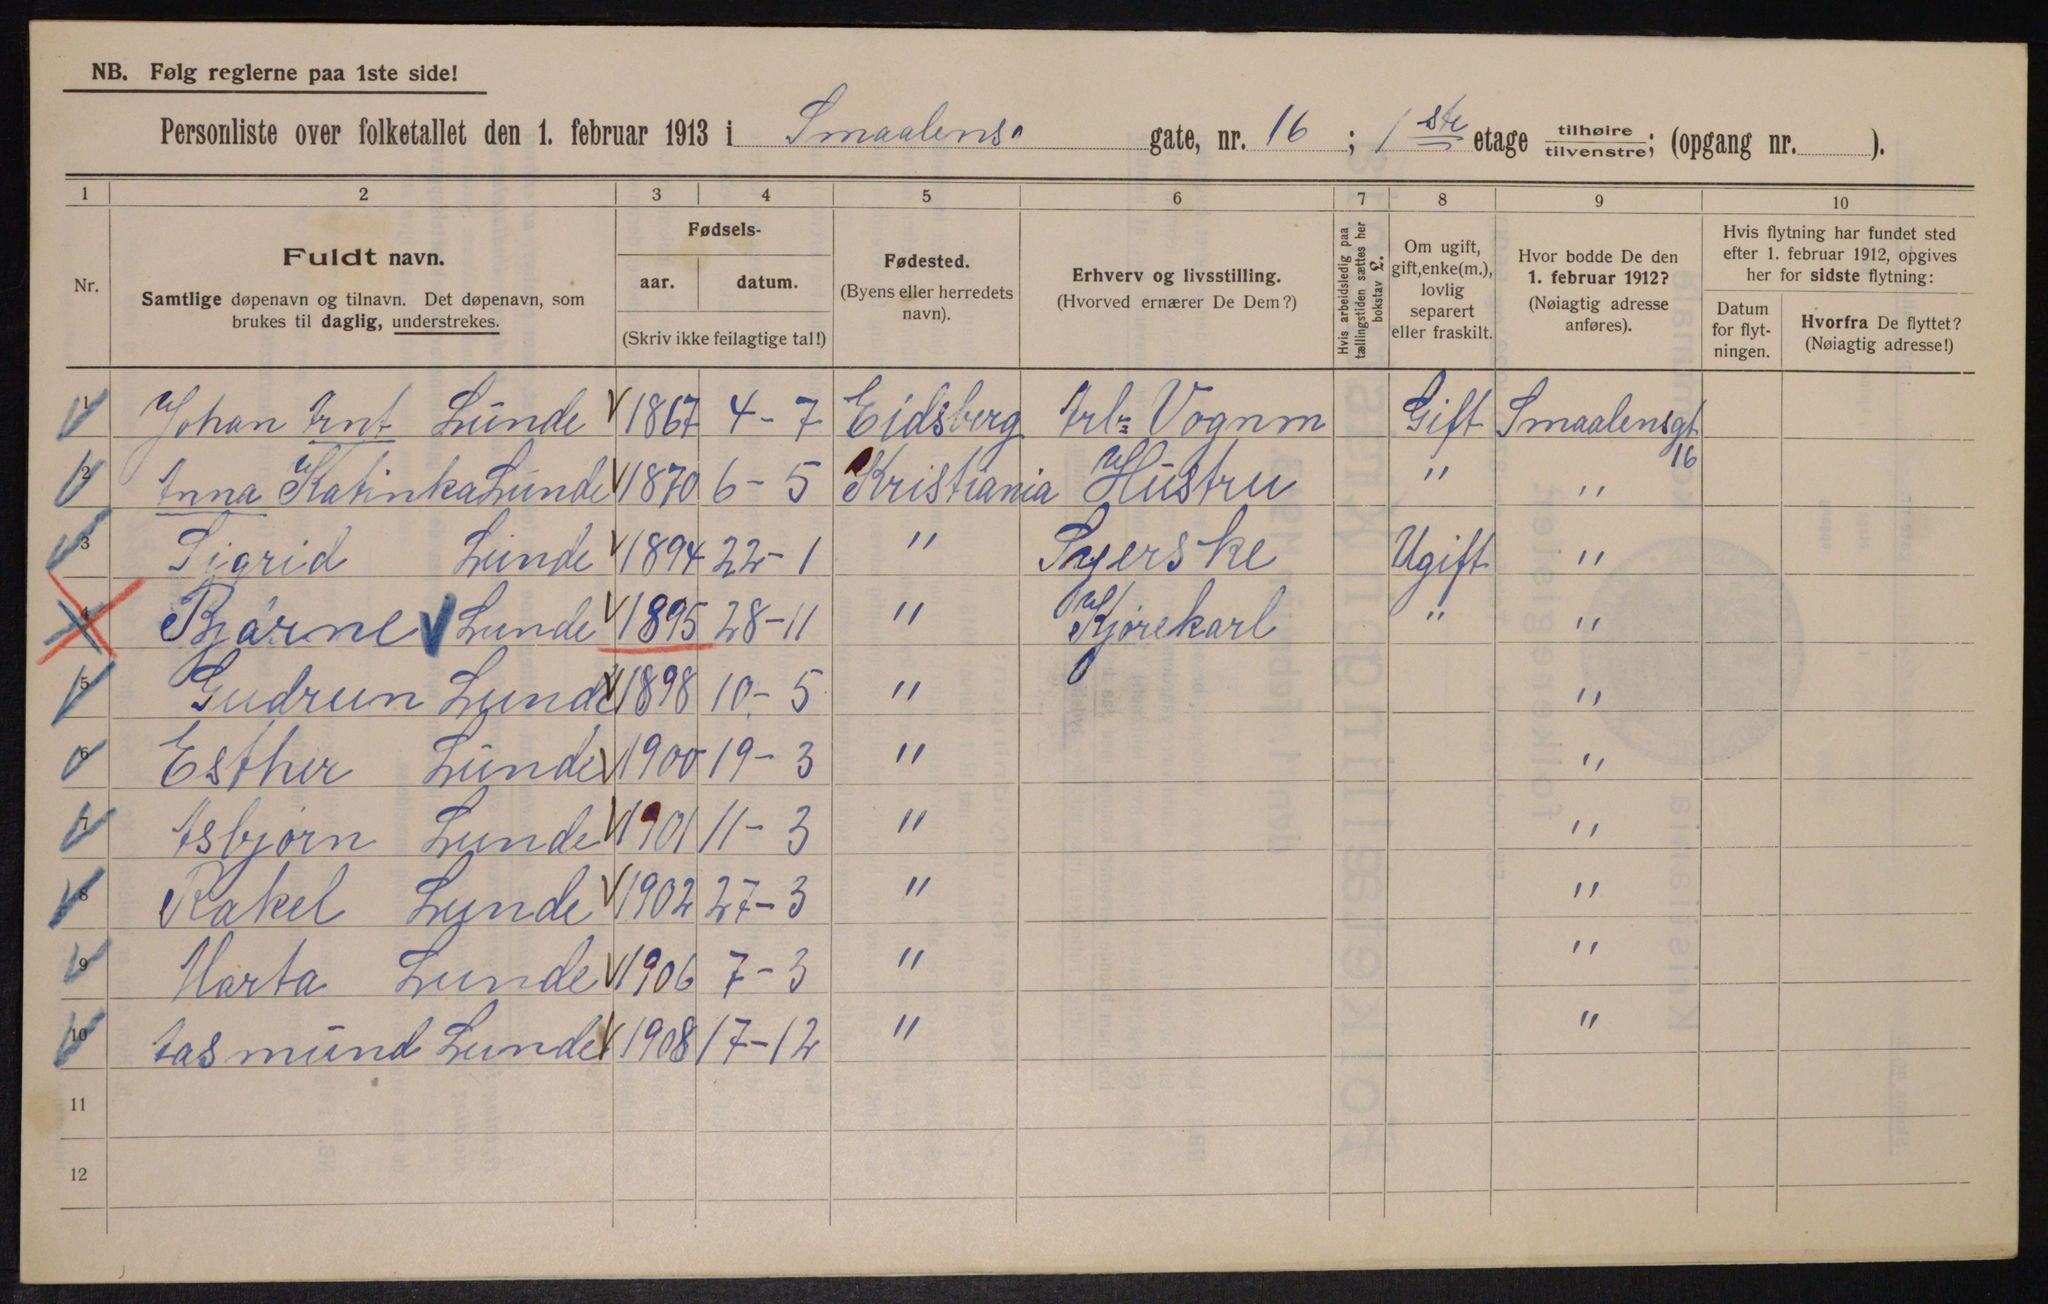 NB. Følg reglerne paa 1ste side!
Personliste over folketallet den 1. februar 1913 i Smaalens gate, nr. 16; 1ste etage tilhøire / tilvenstre; (opgang nr. ).
1 2 3 4 5 6 7 8 9 10
Nr.
Fuldt navn.
Samtlige døpenavn og tilnavn. Det døpenavn, som
brukes til daglig, understrekes.
Fødsels-
aar. datum.
(Skriv ikke feilagtige tal!)
Fødested.
(Byens eller herredets
navn).
Erhverv og livsstilling.
(Hvorved ernærer De Dem?)
Hvis arbeidsledig paa
tællingstiden sættes her
bokstav L.
Om ugift,
gift, enke(m.),
lovlig
separert
eller fraskilt.
Hvor bodde De den
1. februar 1912?
(Nøiagtig adresse
anføres).
Hvis flytning har fundet sted
efter 1. februar 1912, opgives
her for sidste flytning:
Datum
for flyt-
ningen.
Hvorfra De flyttet?
(Nøiagtig adresse!)
1 Johan Arnt Lunde 1867 4-7 Eidsberg Arb= Vognm Gift Smaalensgt 16
2 Anna Katinka Lunde 1870 6-5 Kristiania Hustru " "
3 Sigrid Lunde 1894 22-1 " Syerske Ugift "
4 Bjarne Lunde 1895 28-11 " Kjørekarl " "
5 Gudrun Lunde 1898 10-5 " "
6 Esther Lunde 1900 19-3 " "
7 Asbjørn Lunde 1901 11-3 " "
8 Rakel Lunde 1902 27-3 " "
9 Marta Lunde 1906 7-3 " "
10 Aasmund Lunde 1908 17-12 " "
11
12